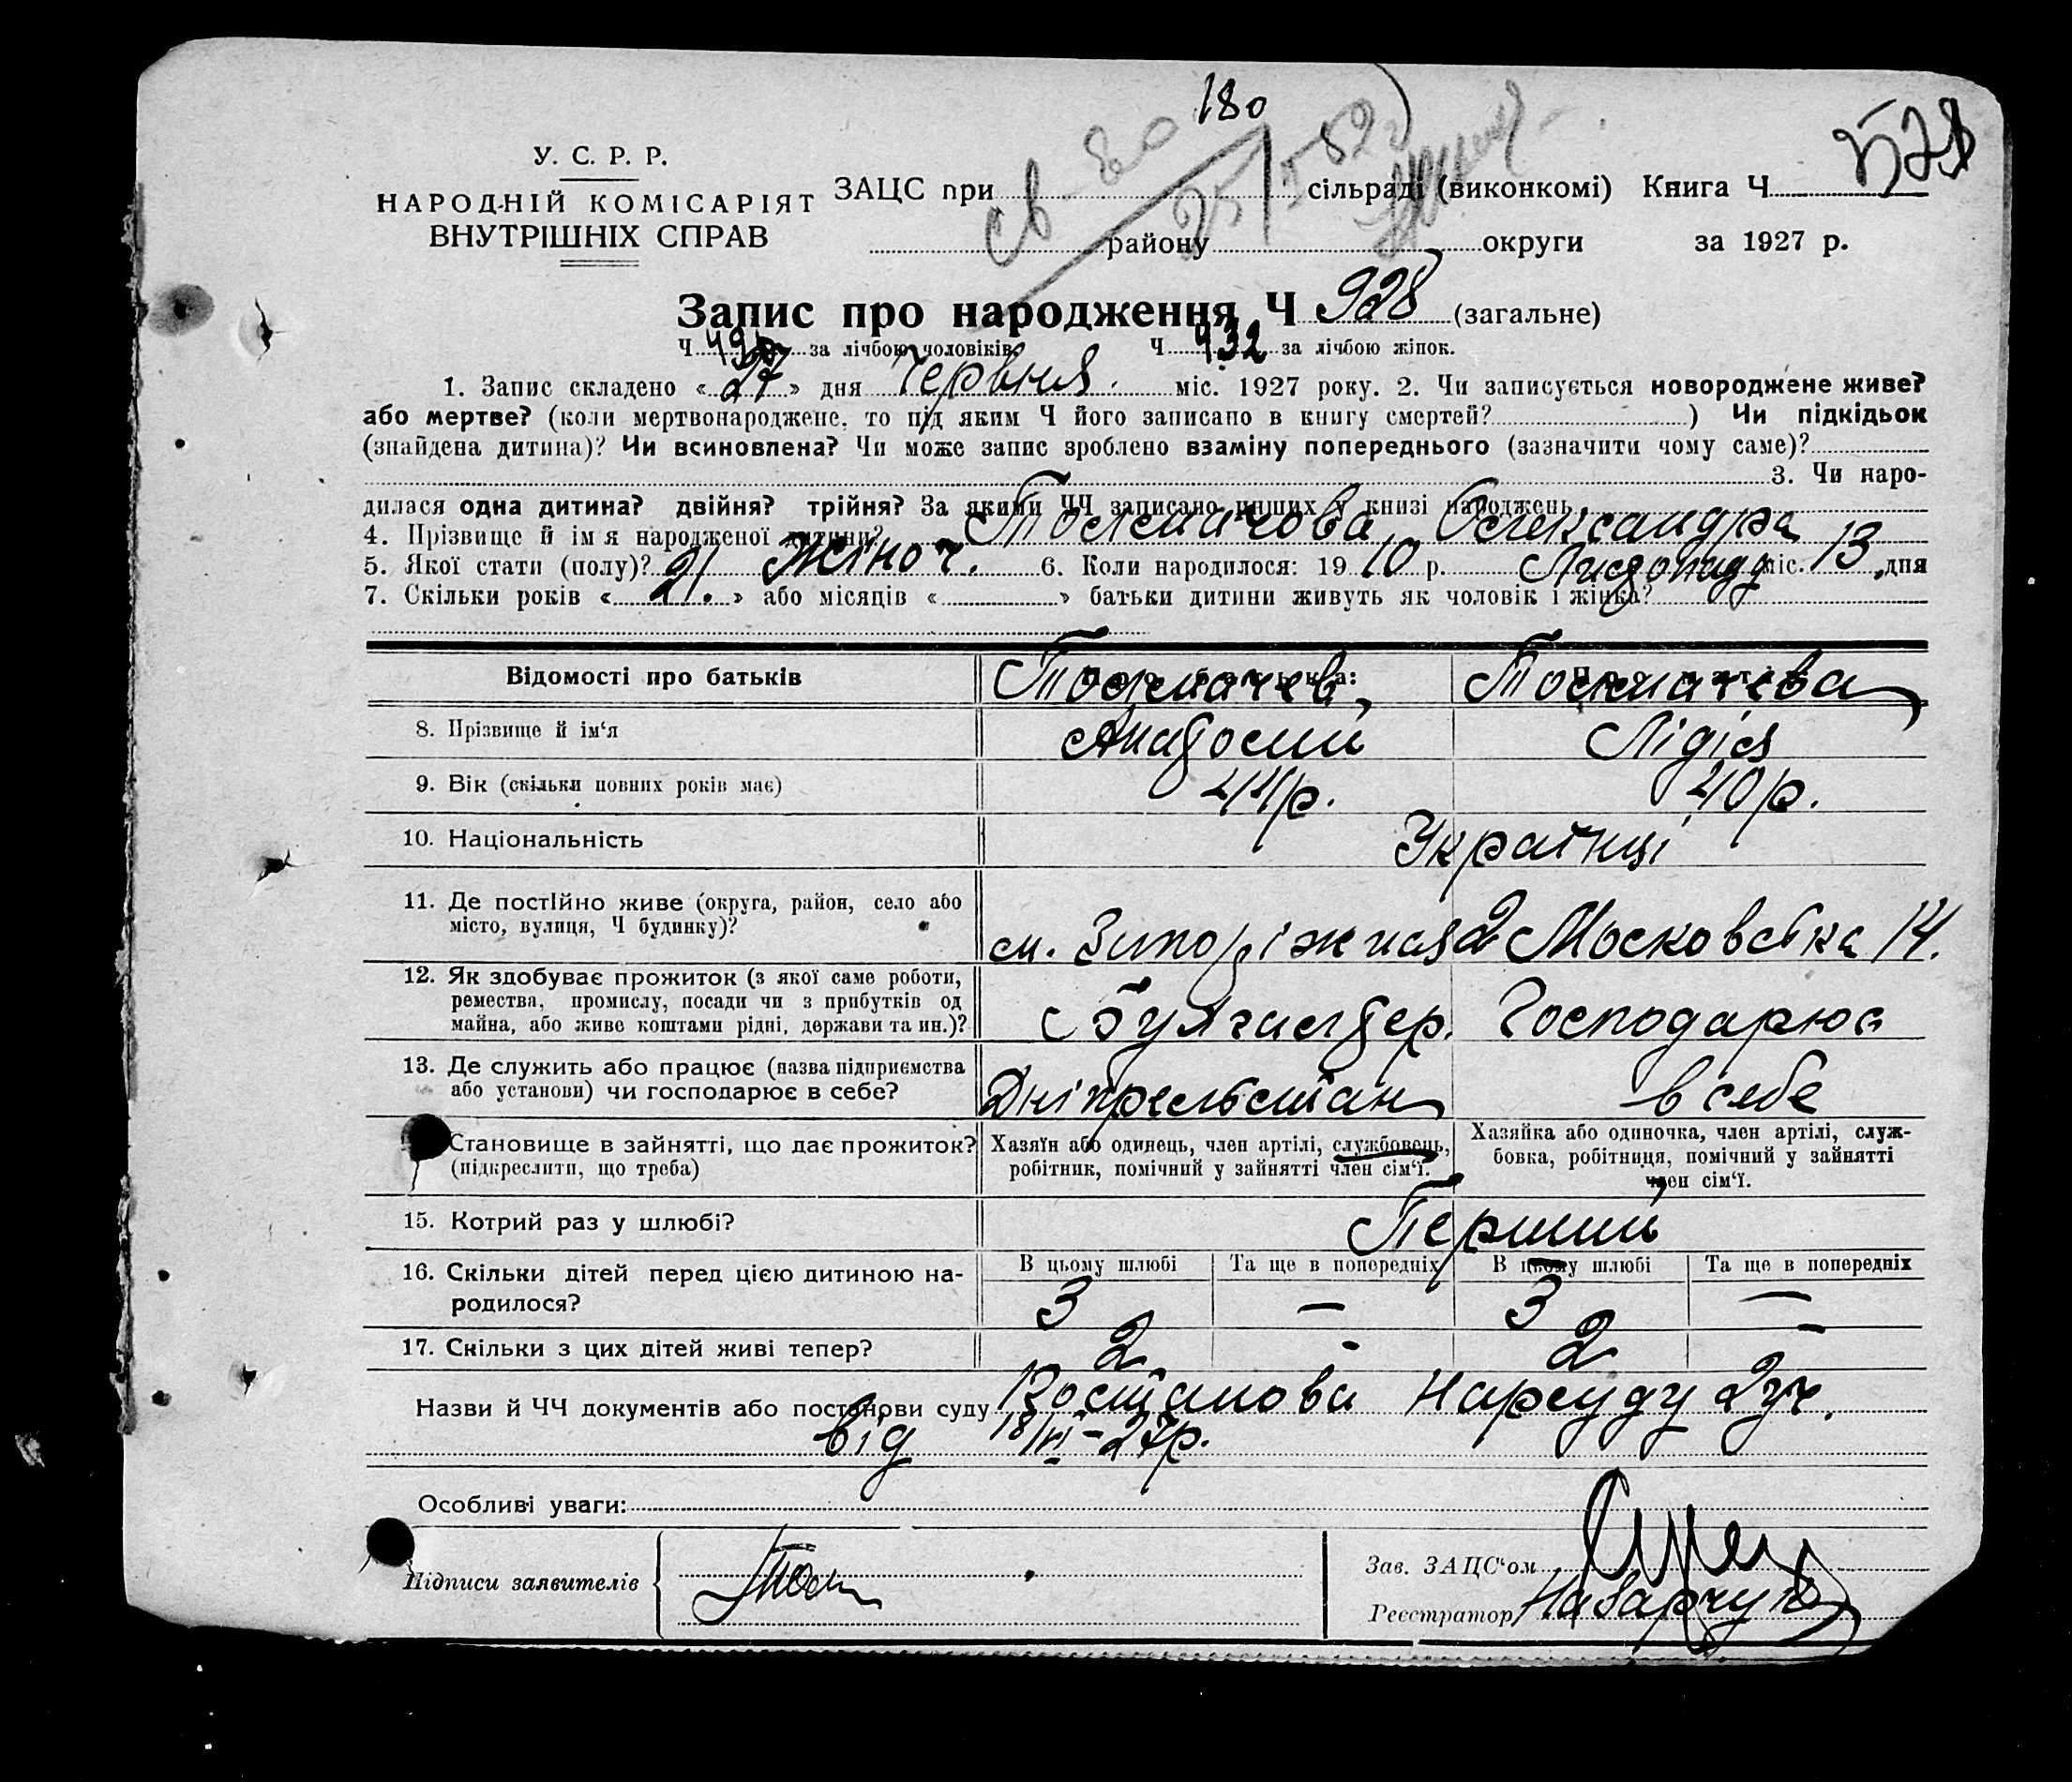 180
528
У. С. Р. Р.
НАРОДНІЙ КОМІСАРІЯТ
ВНУТРІШНІХ СПРАВ
ЗАЦС при сільраді (виконкомі) Книга Ч
району округи за 1927 р.
Запис про народження Ч 928 (загальне)
Ч за лічбою чоловіків. Ч 432 за лічбою жінок.
1. Запис складено «27» дня Червня міс. 1927 року. 2. Чи записується новороджене живе?
або мертве? (коли мертвонароджене, то під яким Ч його записано в книгу смертей? ) Чи підкідьок
(знайдена дитина)? Чи всиновлена? Чи може запис зроблено взаміну попереднього (зазначити чому саме)?
3. Чи наро-
дилася одна дитина? двійня? трійня? За якими ЧЧ записано инших у книзі народжень
4. Прізвище й ім'я народженої дитини? Токмачова Олександра
5. Якої стати (полу)? Жіноч. 6. Коли народилося: 1910 р. Листопаду міс. 13 дня
7. Скільки років «21.» або місяців « » батьки дитини живуть як чоловік і жінка?
Відомості про батьків Про батька: Про матір:
Токмачев, Токмачева
8. Прізвище й ім'я Анатолий Лідія
9. Вік (скільки повних років має) 44 р. 40 р.
10. Національність Українці
11. Де постійно живе (округа, район, село або
місто, вулиця, Ч будинку)? м. Запоріжжя 2 Московська 14.
12. Як здобуває прожиток (з якої саме роботи,
ремества, промислу, посади чи з прибутків од
майна, або живе коштами рідні, держави та ин.)? Бухгалтер. Господарює
13. Де служить або працює (назва підприємства
або установи) чи господарює в себе? Дніпрельстан в себе
Становище в зайнятті, що дає прожиток?
(підкреслити, що треба)
Хазяїн або одинець, член артілі, службовець,
робітник, помічний у зайнятті член сім'ї.
Хазяйка або одиночка, член артілі, служ-
бовка, робітниця, помічний у зайнятті
член сім'ї.
15. Котрий раз у шлюбі? Перший
16. Скільки дітей перед цією дитиною на-
родилося?
В цьому шлюбі Та ще в попередніх В цьому шлюбі Та ще в попередніх
3 — 3 —
17. Скільки з цих дітей живі тепер? 2 - 2 -
Назви й ЧЧ документів або постанови суду Постанова Нарсуду 2 уч.
від 18/VI-27р.
Особливі уваги:
Підписи заявителів
Зав. ЗАЦС'ом
Реєстратор